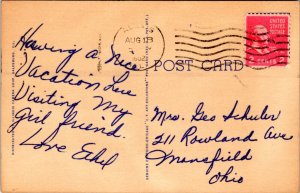 AUG 13
UNITED STATES
POSTAGE
2 CENTS 2
POST CARD
Having a nice
Vacation Luv
Visiting My
girl friend.
Love Ethel
Mrs. Geo Schuler
211 Rowland Ave
Mansfield
Ohio